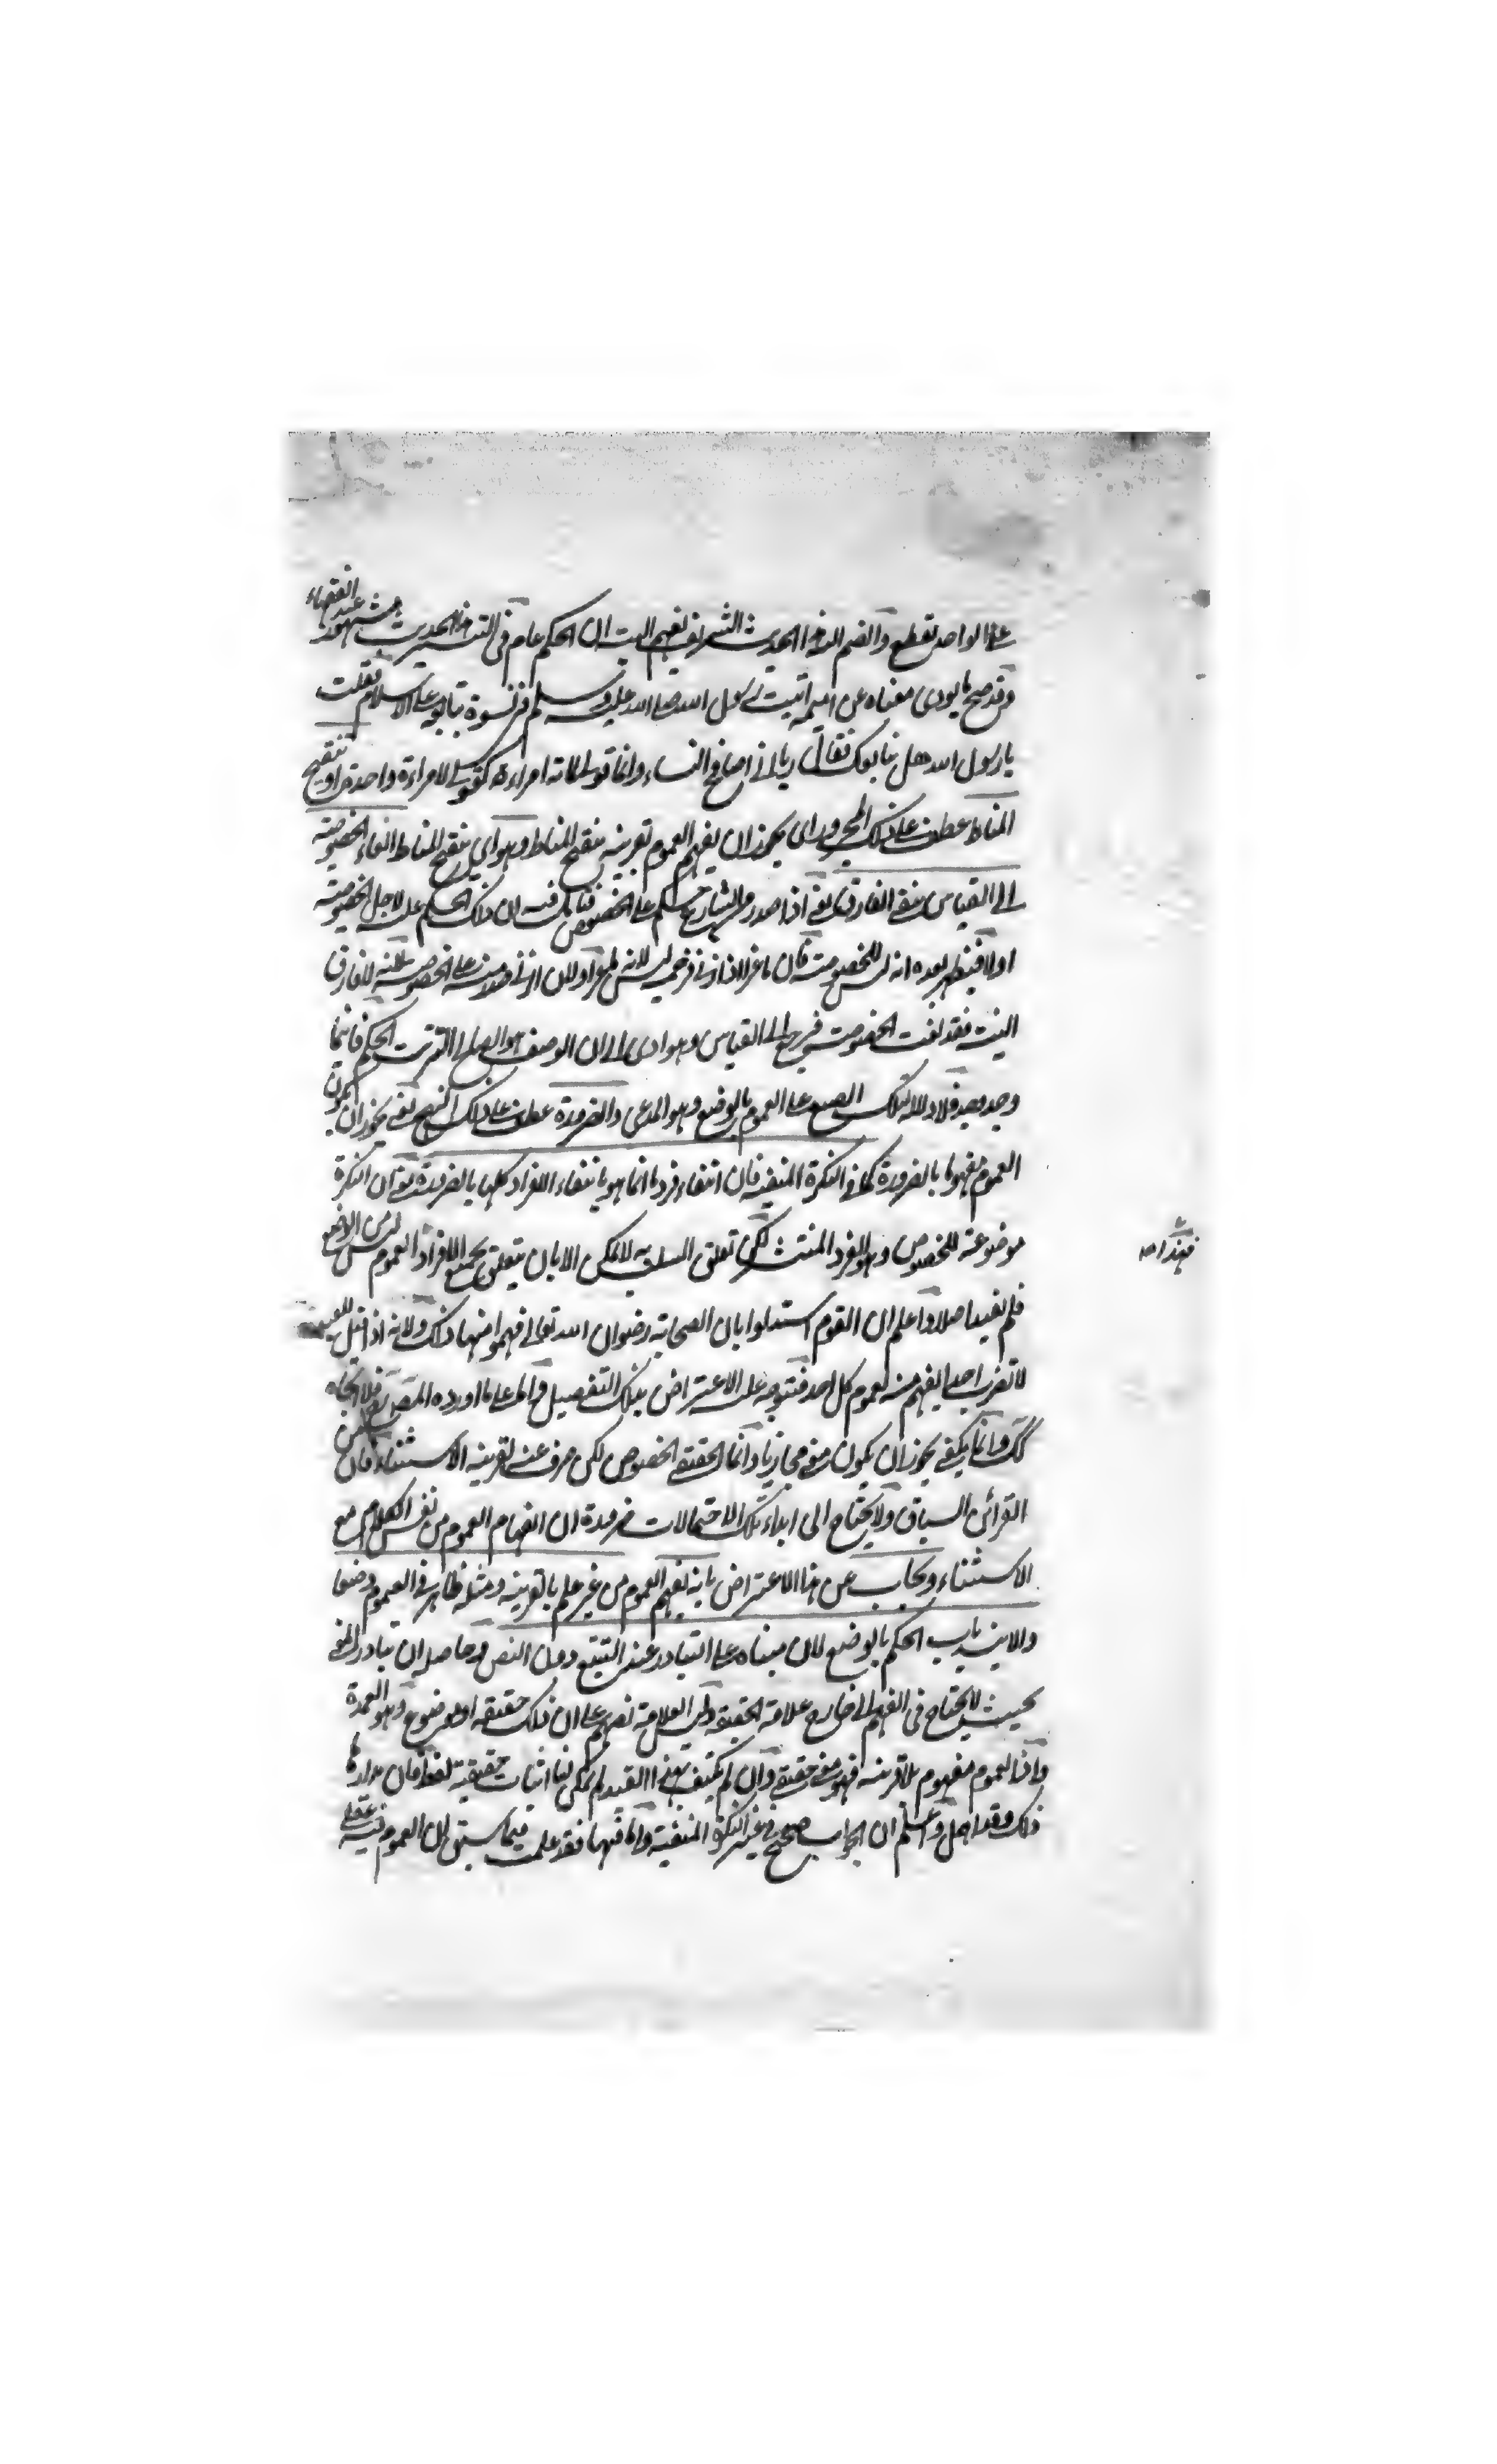 على الواحد تقطع وانضم اليه هذا الحديث الشريف يفهم البتة ان الحكم عام في التفسير هذا الحديث مشهور عند الفقهاء
وقد صح ما يودى معناه عن اميمة اتيت رسول الله صلى الله عليه وسلم في نسوة نبايعه على الاسلام فقلت
يا رسول الله هل نبايعك فقال اني لا اصافح النساء وانما قولي لمائة امراءة كقولي لامراءة واحدة او تنقيح
المناط عطف على ذلك المجرور اى يجوز ان يفهم العموم بقرينة تنقيح المناط وهو اى تنقيح المناط الغاء الخصوصية
الى القياس بنفي الفارق يعني اذا صدر من الشارع حكم على الخصوص فيه ان ذلك الحكم عليه لاجل الخصوصية
اولا فيظهر بعده انه ليس للخصوصية فان ماعزا لما زنى فرجم ليس لانه ماعز او لان الزنى صدر منه على الخصوصية لانه لا فارق
البتة فقد لغت الخصوصية فيرجع الى القياس وهو ادى الى ان الوصف هو الصالح لترتب الحكم فاينما
وجد وجد فلا دلالة لتلك الصيغ على العموم بالوضع وهو المدعى والضرورة عطف على ذلك النهج يعني يجوز ان يكون
العموم مفهوما بالضرورة كما في النكرة المنفية فان انتفاء فرد ما انما هو بانتفاء الافراد كلها بالضرورة يعني ان النكرة
موضوعة للخصوص وهو الفرد المنتشر لكن تعلق السلب به لا يمكن الا بان يتعلق بجميع الافراد العموم ليس من الوضع
فلم يفيد اصلا واعلم ان القوم استدلوا بان الصحابة رضوان الله تعالى فهموا منها ذلك ولانه اذا قيل للعبيد
لا تضرب احدا يفهم منه عموم كل احد فتوجه عليه الاعتراض بذلك التفصيل واما على ما اورده المصـ فلا اتجاه
كك وانما يكفي يجوز ان يكون معنى مجازيا وانما الحقيقي الخصوص لكن صرف عنه لقرينة الاستثناء فان من
القرائن السباق ولا يحتاج الى ابداء تلك الاحتمالات ضرورة ان انفهام العموم من نفس الكلام مع
الاستثناء ويجاب عن هذا الاعتراض بانه يفهم العموم من غير علم بالقرينة ومثله ظاهر في العموم وضعا
والا ينسد باب الحكم بالوضع لان مبناه على التبادر عند التتبع دون النص وحاصله ان تبادر المعنى
بحيث لا يحتاج في الفهم الى خارج علامة الحقيقة وليس العلامة نصهم على ان ذلك حقيقة او موضوع وهو العمدة
واذا العموم مفهوم بلا قرينة فهو معنى حقيقي وان لم يكتف بهذا القيد لم يمكن لنا اثبات حقيقية لفظ فان مدارها
ذلك وقد اهمل واعلم ان الجواب صحيح في غير النكرة المنفية واما فيها فقد علمت فيما سبق ان العموم فيه عقلي